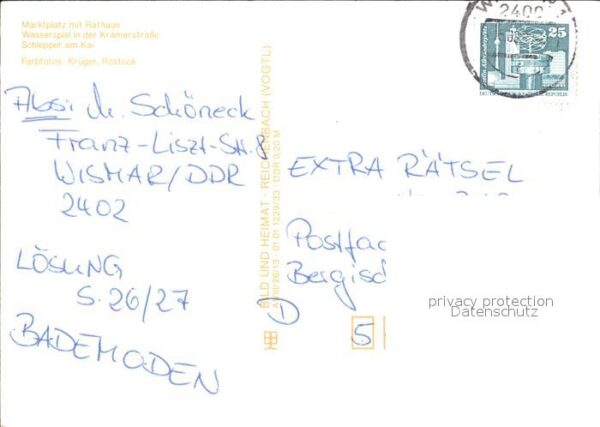 Marktplatz mit Rathaus
Wasserspiel in der Krämerstraße
Schlepper am Kai
Farbfotos: Krüger, Rostock
Abs: M. Schöneck
Franz-Liszt-Str. 8
WISMAR/DDR
2402
LÖSUNG
S. 26/27
BADEMODEN
BILD UND HEIMAT · REICHENBACH (VOGTL)
01 01 1229/33 · DDR 0,20 M
2400
25
EXTRA RÄTSEL
Postfac
Bergisc
D
5
privacy protection
Datenschutz